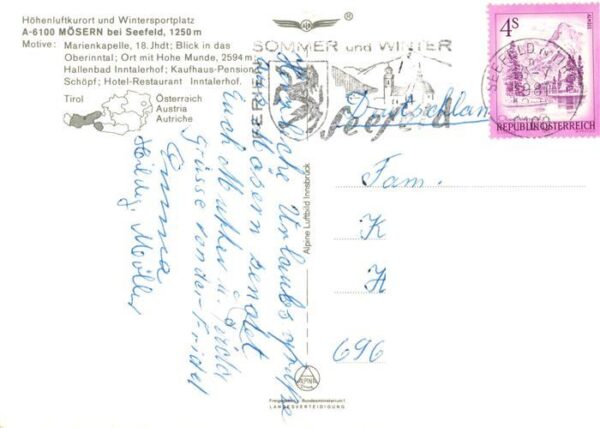 Höhenluftkurort und Wintersportplatz
A-6100 MÖSERN bei Seefeld, 1250 m
Motive: Marienkapelle, 18. Jhdt; Blick in das
Oberinntal; Ort mit Hohe Munde, 2594 m
Hallenbad Inntalerhof; Kaufhaus-Pension
Schöpf; Hotel-Restaurant Inntalerhof.
Tirol
Österreich
Austria
Autriche
®
SOMMER und WINTER
Seefeld
4S
REPUBLIK ÖSTERREICH
SEEFELD
6100
Deutschland
Herzliche Urlaubsgrüße
aus Mösern sendet
Euch Mutter u.
Grüsse von der Friedel
Emma
Müller
Fam.
K
H
696
Alpine Luftbild Innsbruck
ALPINE
LANDESVERTEIDIGUNG